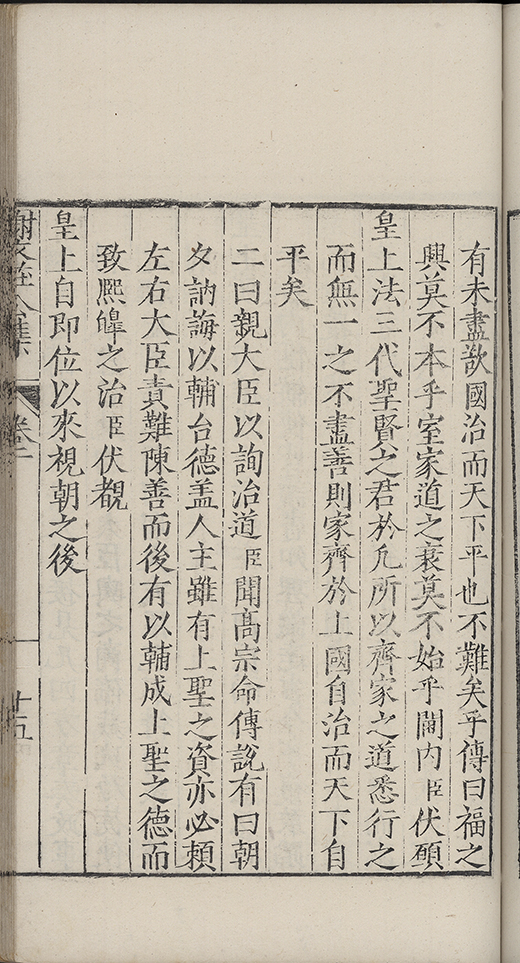 有未盡欲國治而天下平也不難矣乎傳曰福之
興莫不本乎室家道之衰莫不始乎閫内臣伏願
皇上法三代聖賢之君於凡所以齊家之道悉行之
而無一之不盡善則家齊於上國自治而天下自
平矣
二曰親大臣以詢治道臣聞髙宗命傅説有曰朝
夕訥誨以輔台德盖人主雖有上聖之資亦必頼
左右大臣責難陳善而後有以輔成上聖之德而
致熈皥之治臣伏覩
皇上自即位以來視朝之後
謝文莊公集 卷二 十五